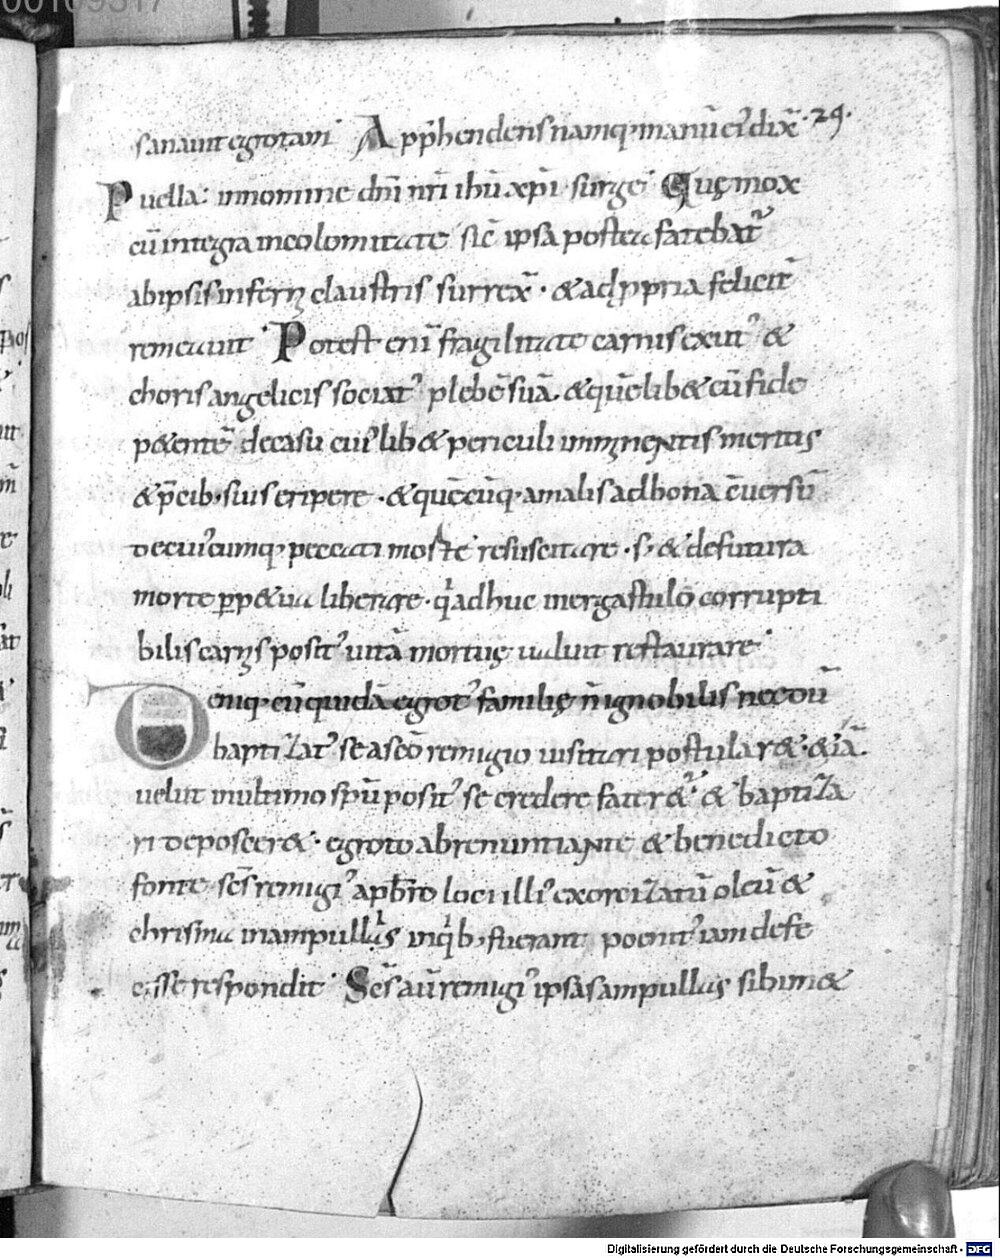 00109317
sanauit egrotam· App̄hendens namq· manū ei' dix̄· 29.
Puella: innomine dn̄i nr̄i ihū xp̄i· surge· Quę mox
cū integra incolomitate sic̄ ipsa postea fatebat'
abipsis infer claustris surrex̄· & ad ꝓpria felicit̄
remeauit· Potest eni̅ fragilitate carnis exut' &
choris angelicis sociat' plebē suā· & quēlib& cū fide
p&entē decasu cui'lib& periculi imminentis meritis
& p̄cib· suis eripere· & quēcūq· amalis adbona c̄uersū
decui'cumq· peccati morte resuscitare· s; & defutura
morte ꝑp&ua liberare· qi adhuc inergastulo corrupti
bilis carnis posit' uitā mortuę ualuit restaurare·
Deniq· cū quidā egrot' familię n̄ ignobilis necdū
baptizat' se asc̄o remigio uisitari postular&· & iā·
uelut inultimo spū posit' se credere fater&'· & baptiza
ri deposcer&· egroto abrenuntiante & benedicto
fonte sc̄s remigi' apb̄ro loci illi' exorcizatū oleū &
chrisma inampullis inq'b· fuerant poenit' iam defe
cisse respondit· Sc̄s aū remigi' ipsas ampullas sibim&
Digitalisierung gefördert durch die Deutsche Forschungsgemeinschaft - DFG